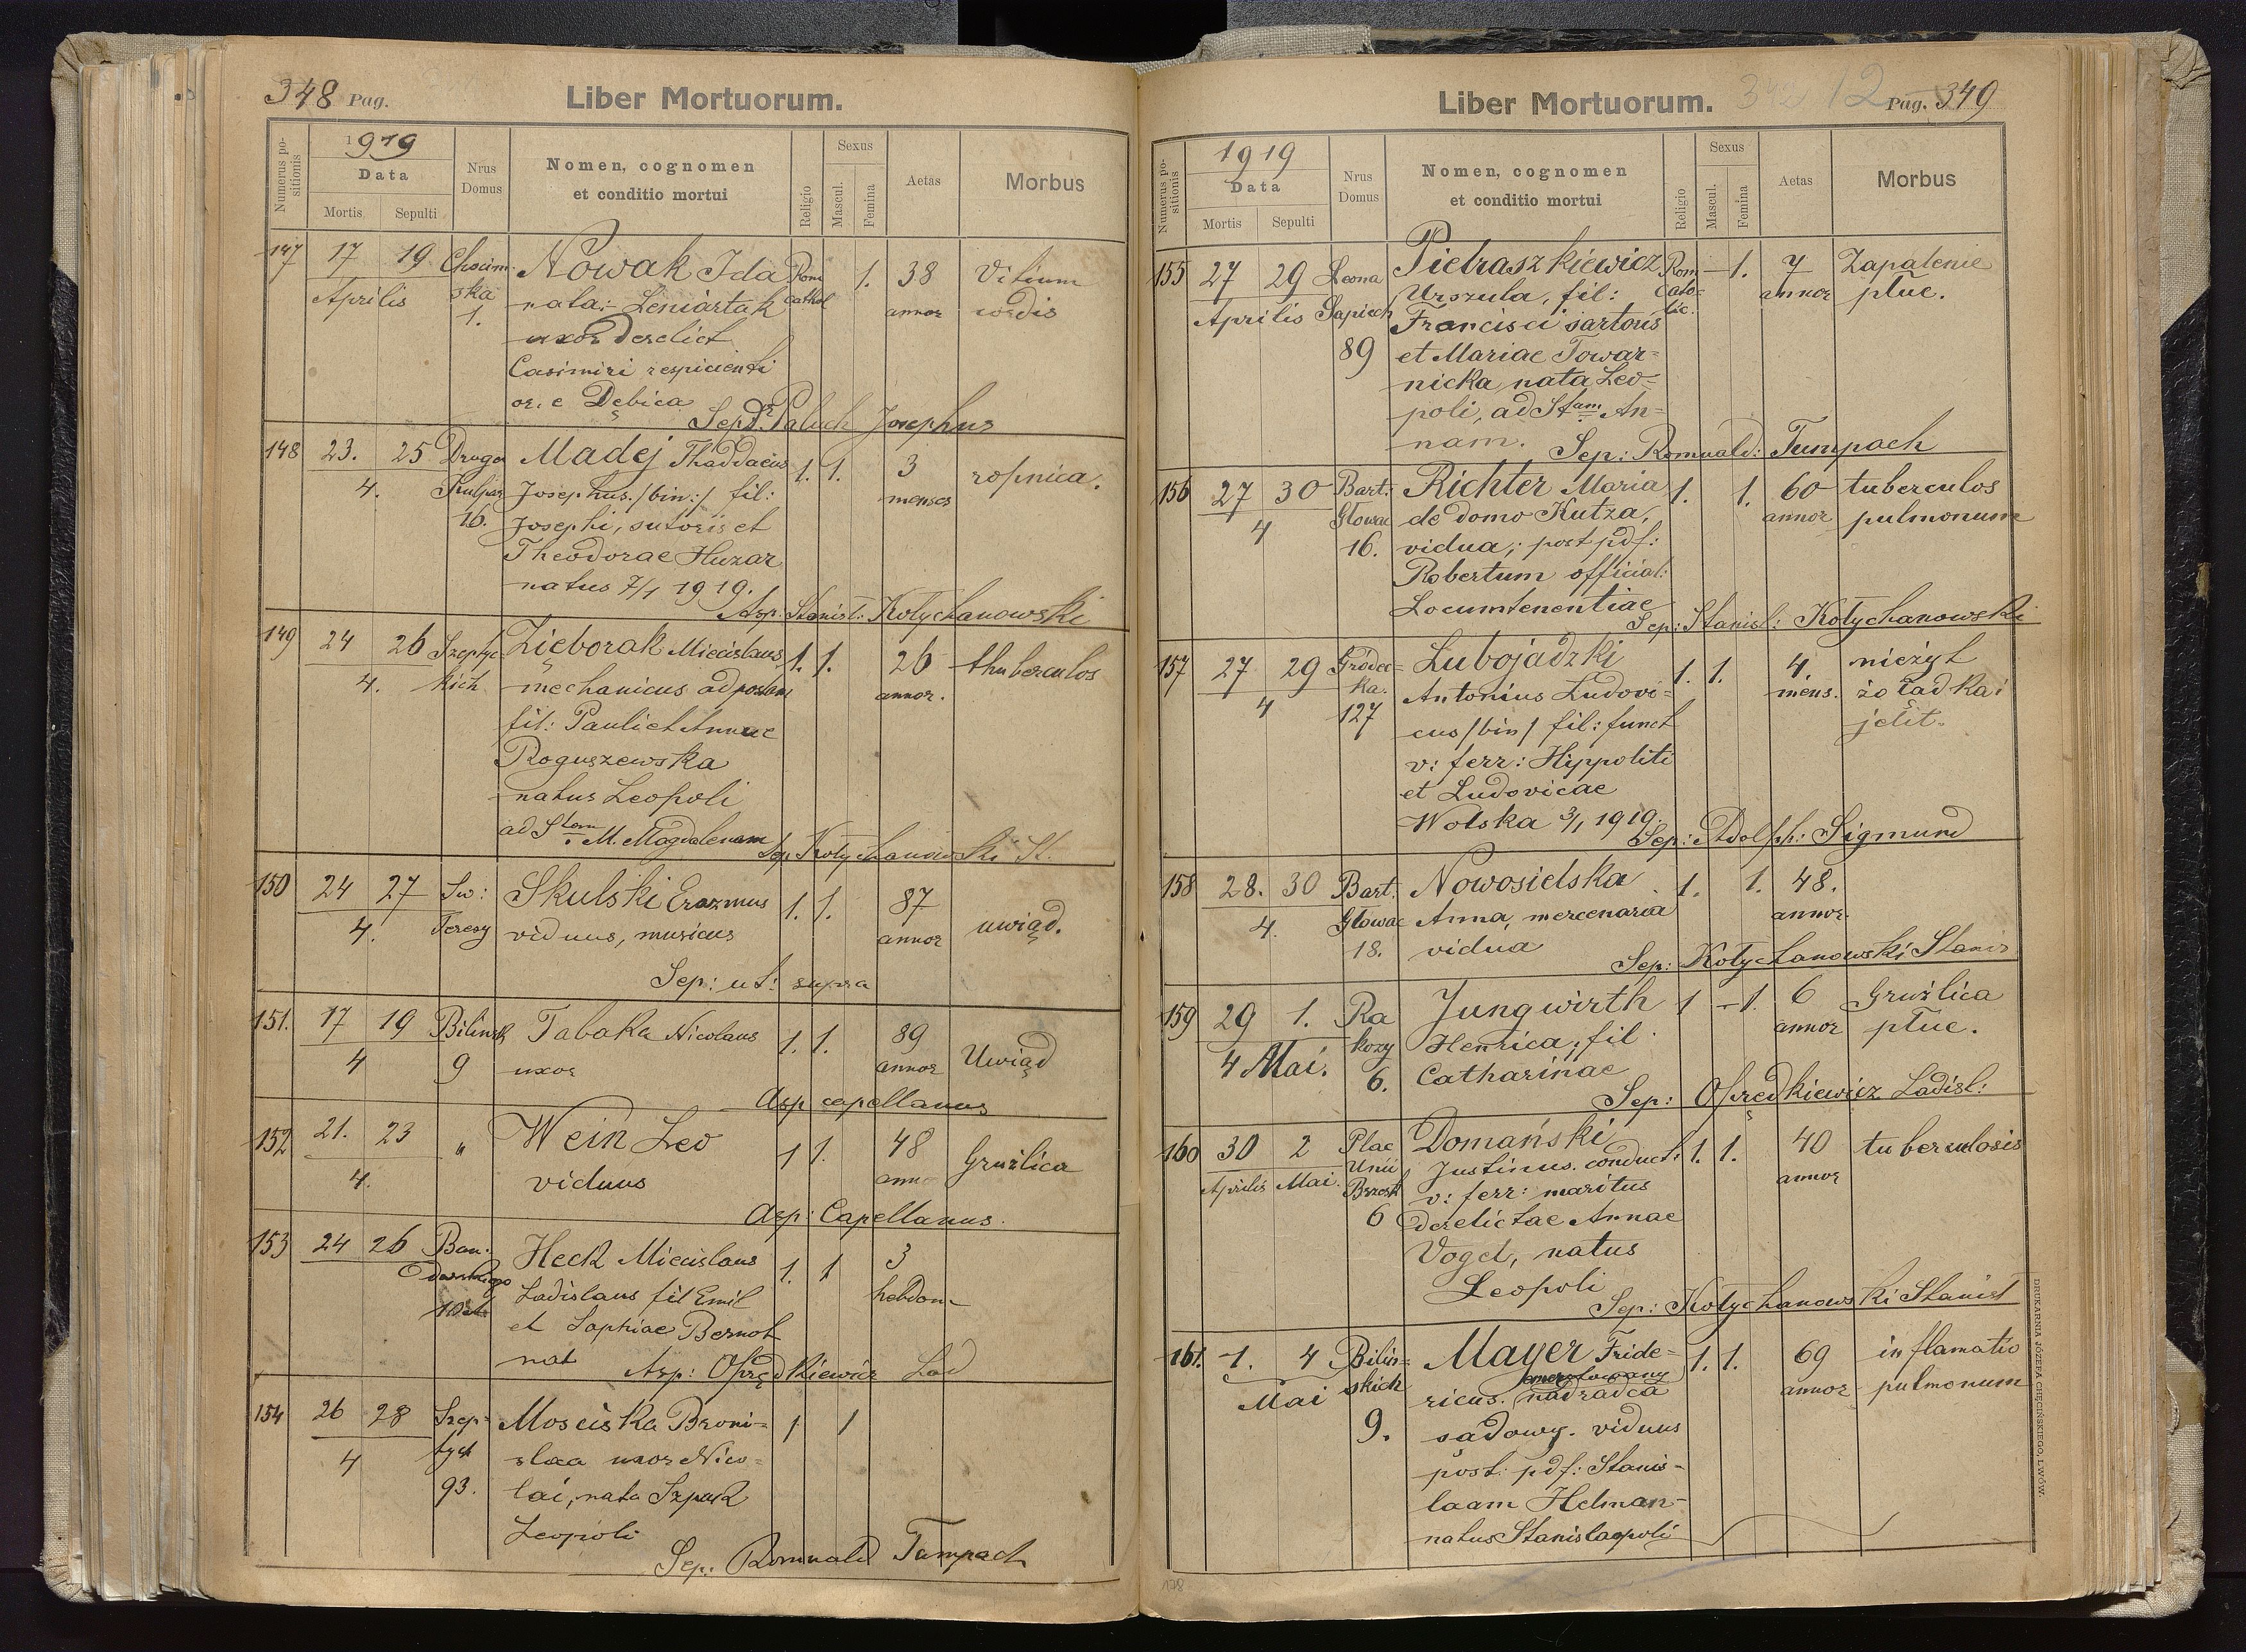 348 Pag.
Liber Mortuorum.
Numerus positionis
1919
Data
Mortis
Sepulti
Nrus Domus
Nomen, cognomen
et conditio mortui
Religio
Sexus
Mascul.
Femina
Aetas
Morbus
147 17 19 Chocim- Nowak Ida Rom 1. 38 Vitium
Aprilis ska nata: Leniartak cathol annor cordis
1. uxor derelict
Casimiri respicienti
or. e Dębica
Sep. Dr. Paluch Josephus
148 23. 25 Druga Madej Thaddaeus 1. 1. 3 ropnica.
4. Kulpar Josephus. /bin:/ fil: menses
16. Josephi, sutoris et
Theodorae Huzar
natus 7/1 1919.
Asp: Stanisl: Kotychanowski
149 24 26 Szeptyc- Zięborak Miecislaus 1. 1. 26 thuberculos
4. kich mechanicus ad postam annor.
fil: Pauli et Annae
Roguszewska
natus Leopoli
ad Stam M. Magdalenam
Sep. Kotychanowski St.
150 24 27 Św: Skulski Erazmus 1. 1. 87 uwiąd.
4. Teresy viduus, musicus annor
Sep: ut: supra
151. 17 19 Bilinsk Tabaka Nicolaus 1. 1. 89 Uwiąd
4 9 uxor annor
Asp capellanus
152 21. 23 " Wein Leo 1 1. 48 Gruźlica
4. viduus anno
Asp: Capellanus.
153 24 26 Ban- Heck Miecislaus 1. 1 3
durskiego Ladislaus fil Emil hebdom-
et Sophiae Bernot
nat
Asp: Oprędkiewicz Lad
154 26 28 Szep- Mosciska Broni- 1 1
4 tyck slaa uxor Nico-
93. lai, nata Szpak
Leopoli
Sep: Romuald Tumpach
Liber Mortuorum.
342 12
Pag. 349
Numerus positionis
1919
Data
Mortis
Sepulti
Nrus Domus
Nomen, cognomen
et conditio mortui
Religio
Sexus
Mascul.
Femina
Aetas
Morbus
155 27 29 Leona Pietraszkiewicz Rom — 1. 7 Zapalenie
Aprilis Sapieh Urszula, fil: cato- annor płuc.
89 Francisci sartoris lic.
et Mariae Towar-
nicka, nata Leo-
poli, ad Stam An-
nam.
Sep: Romuald: Tumpach
156 27 30 Bart. Richter Maria 1. 1. 60 tuberculos
4 Głowac de domo Kutza, annor pulmonum
16. vidua; post pdf:
Robertum official:
Locumtenentiae
Sep: Stanisl: Kotychanowski
157 27 29 Gródec- Lubojadzki 1. 1. 4. nieżyt
4 ka. Antonius Ludovi- mens. żołądka i
127 cus /bin/ fil: funct jelit.
v: ferr: Hippoliti
et Ludovicae
Wolska 3/1 1919.
Sep: Adolph: Sigmund
158 28. 30 Bart. Nowosielska 1. 1. 48.
4. Głowac Anna, mercenaria annor.
18. vidua
Sep: Kotychanowski Stanis
159 29 1. Ra Jungwirth 1 — 1. 6 Gruźlica
4 Mai. kozy Henrica, fil annor płuc.
6. Catharinae
Sep: Oprędkiewicz Ladisl:
160 30 2 Plac Domański 1. 1. 40 tuberculosis
Aprilis Mai. Unii Justinus. conduct: annor
Brzesk v: ferr: maritus
6 derelictae Annae
Vogel, natus
Leopoli
Sep: Kotychanowski Stanisl
161. 1. 4 Bilin- Mayer Fride- 1. 1. 69 inflamatio
Mai skich ricus. emerytowany nadradca annor pulmonum
9. sądowy. viduus
post: pdf: Stanis-
laam Helman-
natus Stanislaopoli
DRUKARNIA JÓZEFA CHĘCIŃSKIEGO, LWÓW.
178